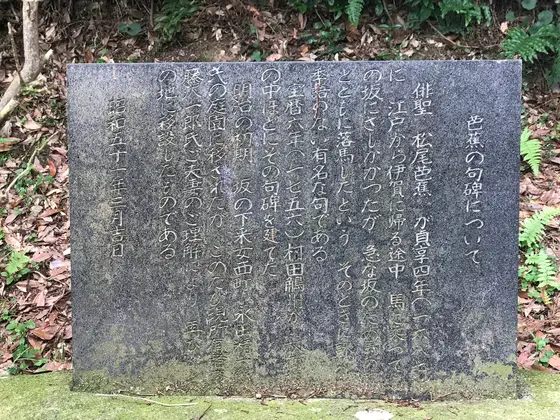 芭蕉の句碑について
俳聖 松尾芭蕉 が貞享四年
に 江戸から伊賀に帰る途中 馬に
の坂にさしかかったが 急な坂のため
とともに落馬したという そのときに
季語のない有名な句である
宝暦六年（一七五六）村田鵤
の中ほどにその句碑を建てた
明治の初期 坂の下采女西町
その庭園に移されたが このたび現所有者
ご夫妻のご理解により
の地に移設したものである
昭和五十一年三月吉日